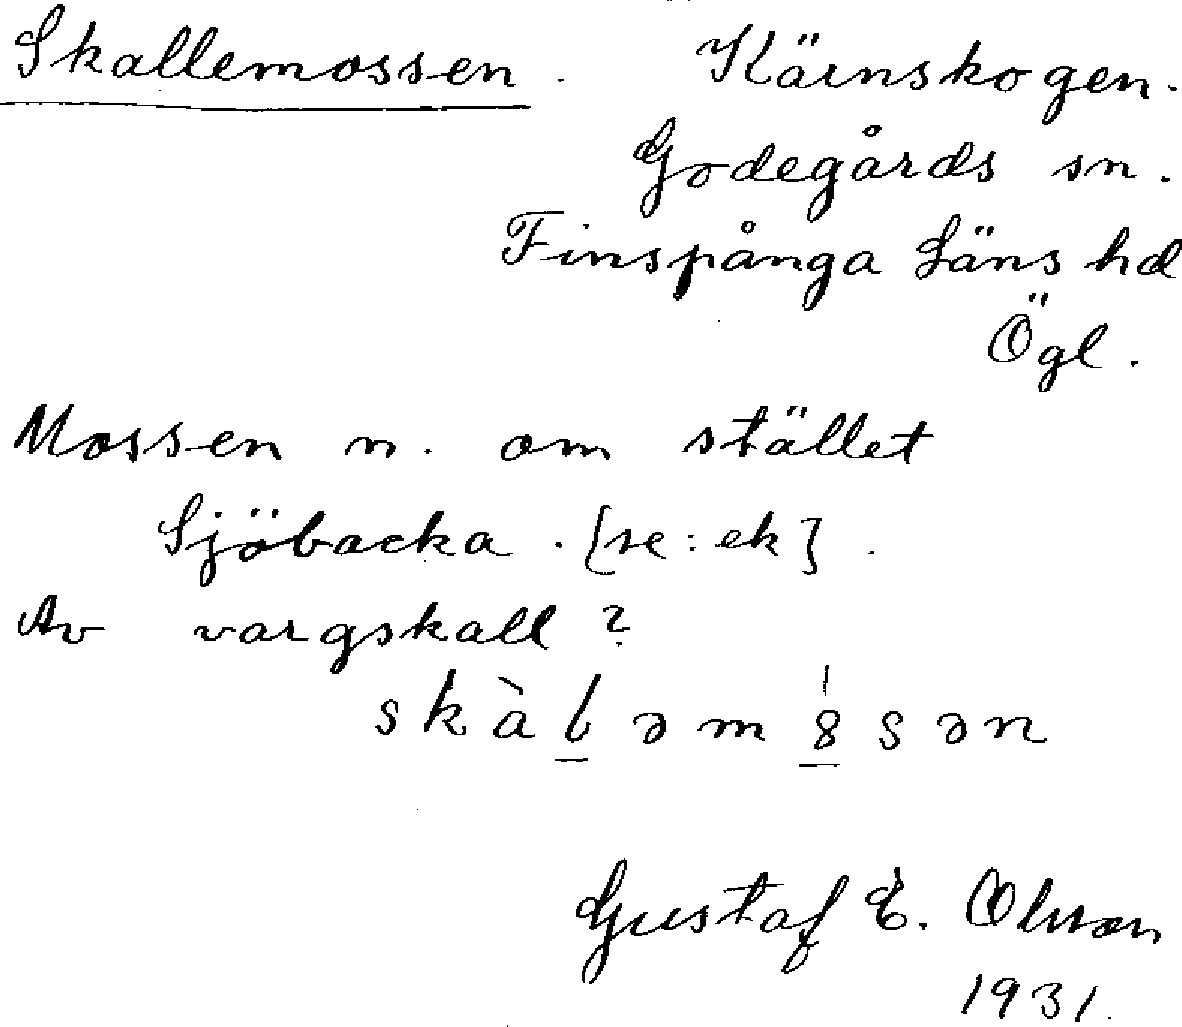 Skallemossen. Kärnskogen.
Godegårds sn.
Finspånga Läns hd
Ögl.
Mossen n. om stället
Sjöbacka. [se: ek].
Av vargskall?
skàlləm8̍sən
Gustaf E. Olsson
1931.